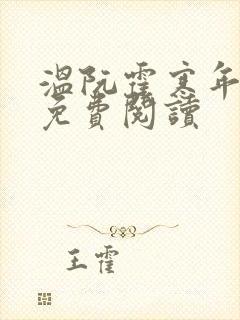 溫阮霍寒年
免費閱讀
王霍